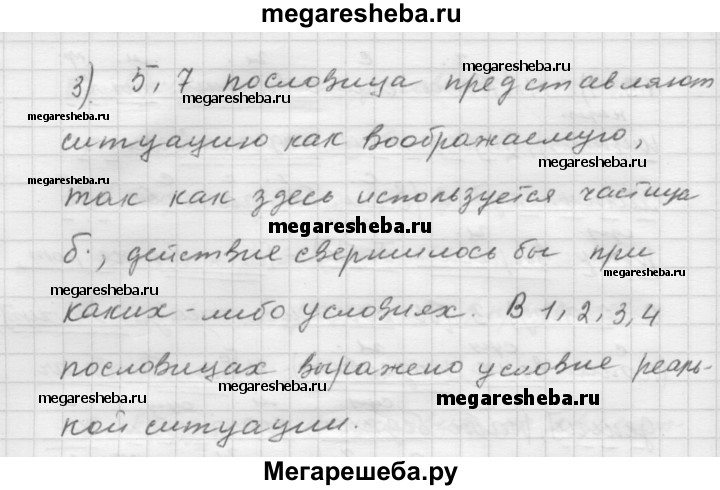 megaresheba.ru
3). 5, 7 пословица представляют
megaresheba.ru
megaresheba.ru
megaresheba.ru
ситуацию как воображаемую,
megaresheba.ru
megaresheba.ru
так как здесь используется частица
megaresheba.ru
б., действие свершилось бы при
megaresheba.ru
megaresheba.ru
каких-либо условиях. В 1, 2, 3, 4
megaresheba.ru
пословицах выражено условие реаль-
megaresheba.ru
megaresheba.ru
megaresheba.ru
ной ситуации.
Мегарешеба.ру